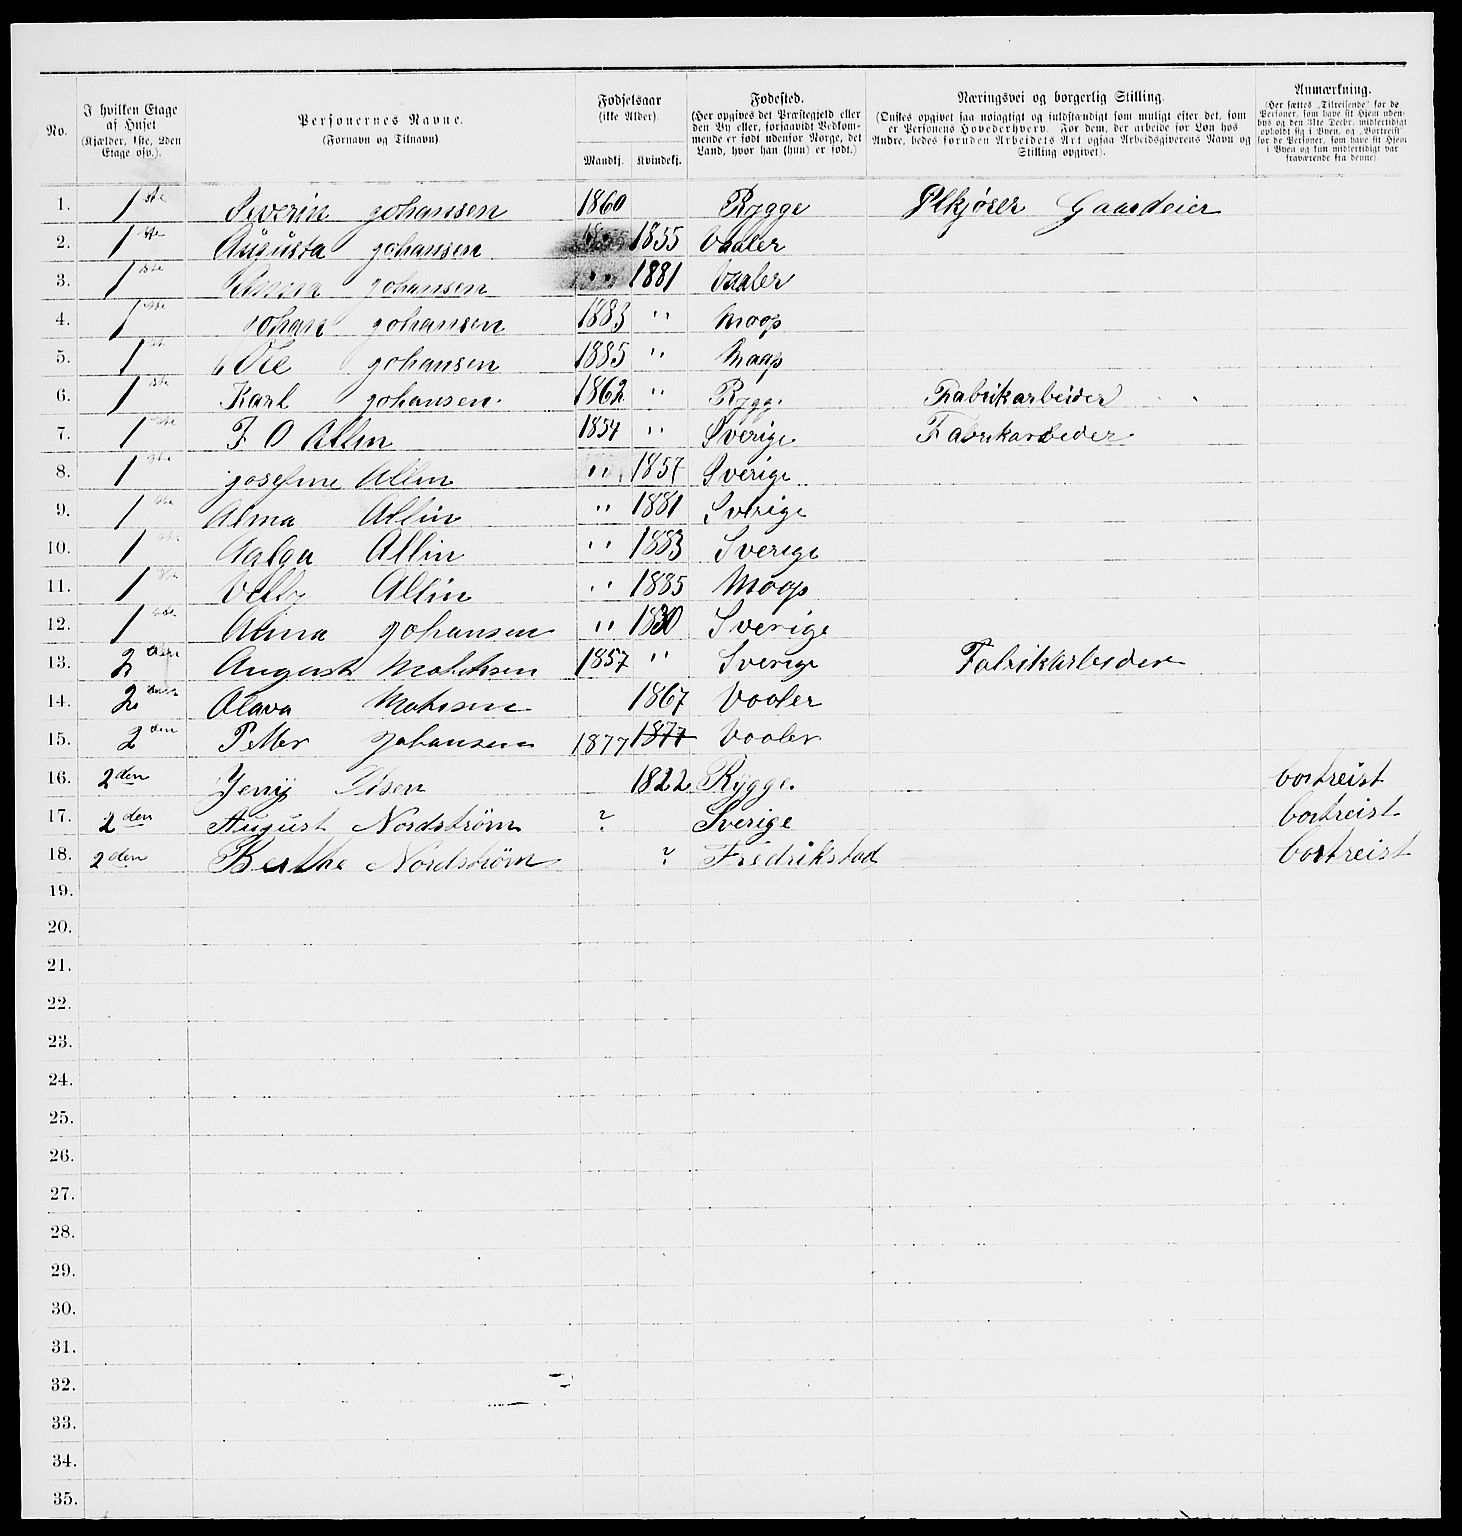 No. | I hvilken Etage af Huset (Kjælder, 1ste, 2den Etage osv.). | Personernes Navne. (Fornavn og Tilnavn) | Fødselsaar (ikke Alder). Mandkj. | Kvindekj. | Fødested. (Her opgives det Præstegjeld eller den By eller, forsaavidt Vedkommende er født udenfor Norge, det Land, hvor han (hun) er født.) | Næringsvei og borgerlig Stilling. (Ønskes opgivet saa nøiagtigt og fuldstændigt som muligt efter det, som er Personens Hovederhverv. For dem, der arbeide for Løn hos Andre, bedes foruden Arbeidets Art ogsaa Arbeidsgiverens Navn og Stilling opgivet). | Anmærkning. (Her sættes „Tilreisende" for de Personer, som have sit Hjem udenbys og den 31te Decbr. midlertidigt opholdt sig i Byen, og „Bortreist" for de Personer, som have sit Hjem i Byen og kun midlertidigt var fraværende fra denne).
1. 1ste Severin Johansen 1860 Rygge Gaardeier
2. 1ste Augusta Johansen 1855 Vaaler
3. 1ste Johansen " 1881 Vaaler
4. 1ste Johan Johansen 1883 " Moss
5. 1ste Ole Johansen 1885 " Moss
6. 1ste Karl Johansen 1862 " Rygge Fabrikarbeider
7. 1ste F O Allin 1854 " Sverige Fabrikarbeder
8. 1ste Josefine Allin " 1857 Sverige
9. 1ste Alma Allin " 1881 Sverige
10. 1ste Allin " 1883 Sverige
11. 1ste Allin " 1885 Moss
12. 1ste Johansen " 1830 Sverige
13. 2den August 1857 " Sverige Fabrikarbeder
14. 2den Olava 1867 Vaaler
15. 2den Petter Johansen 1877 1877 Vaaler
16. 2den Jenny Olsen 1822 Rygge. bortreist
17. 2den August Nordstrøm ? Sverige bortreist
18. 2den Berthe Nordstrøm ? Fredrikstad bortreist
19.
20.
21.
22.
23.
24.
25.
26.
27.
28.
29.
30.
31.
32.
33.
34.
35.